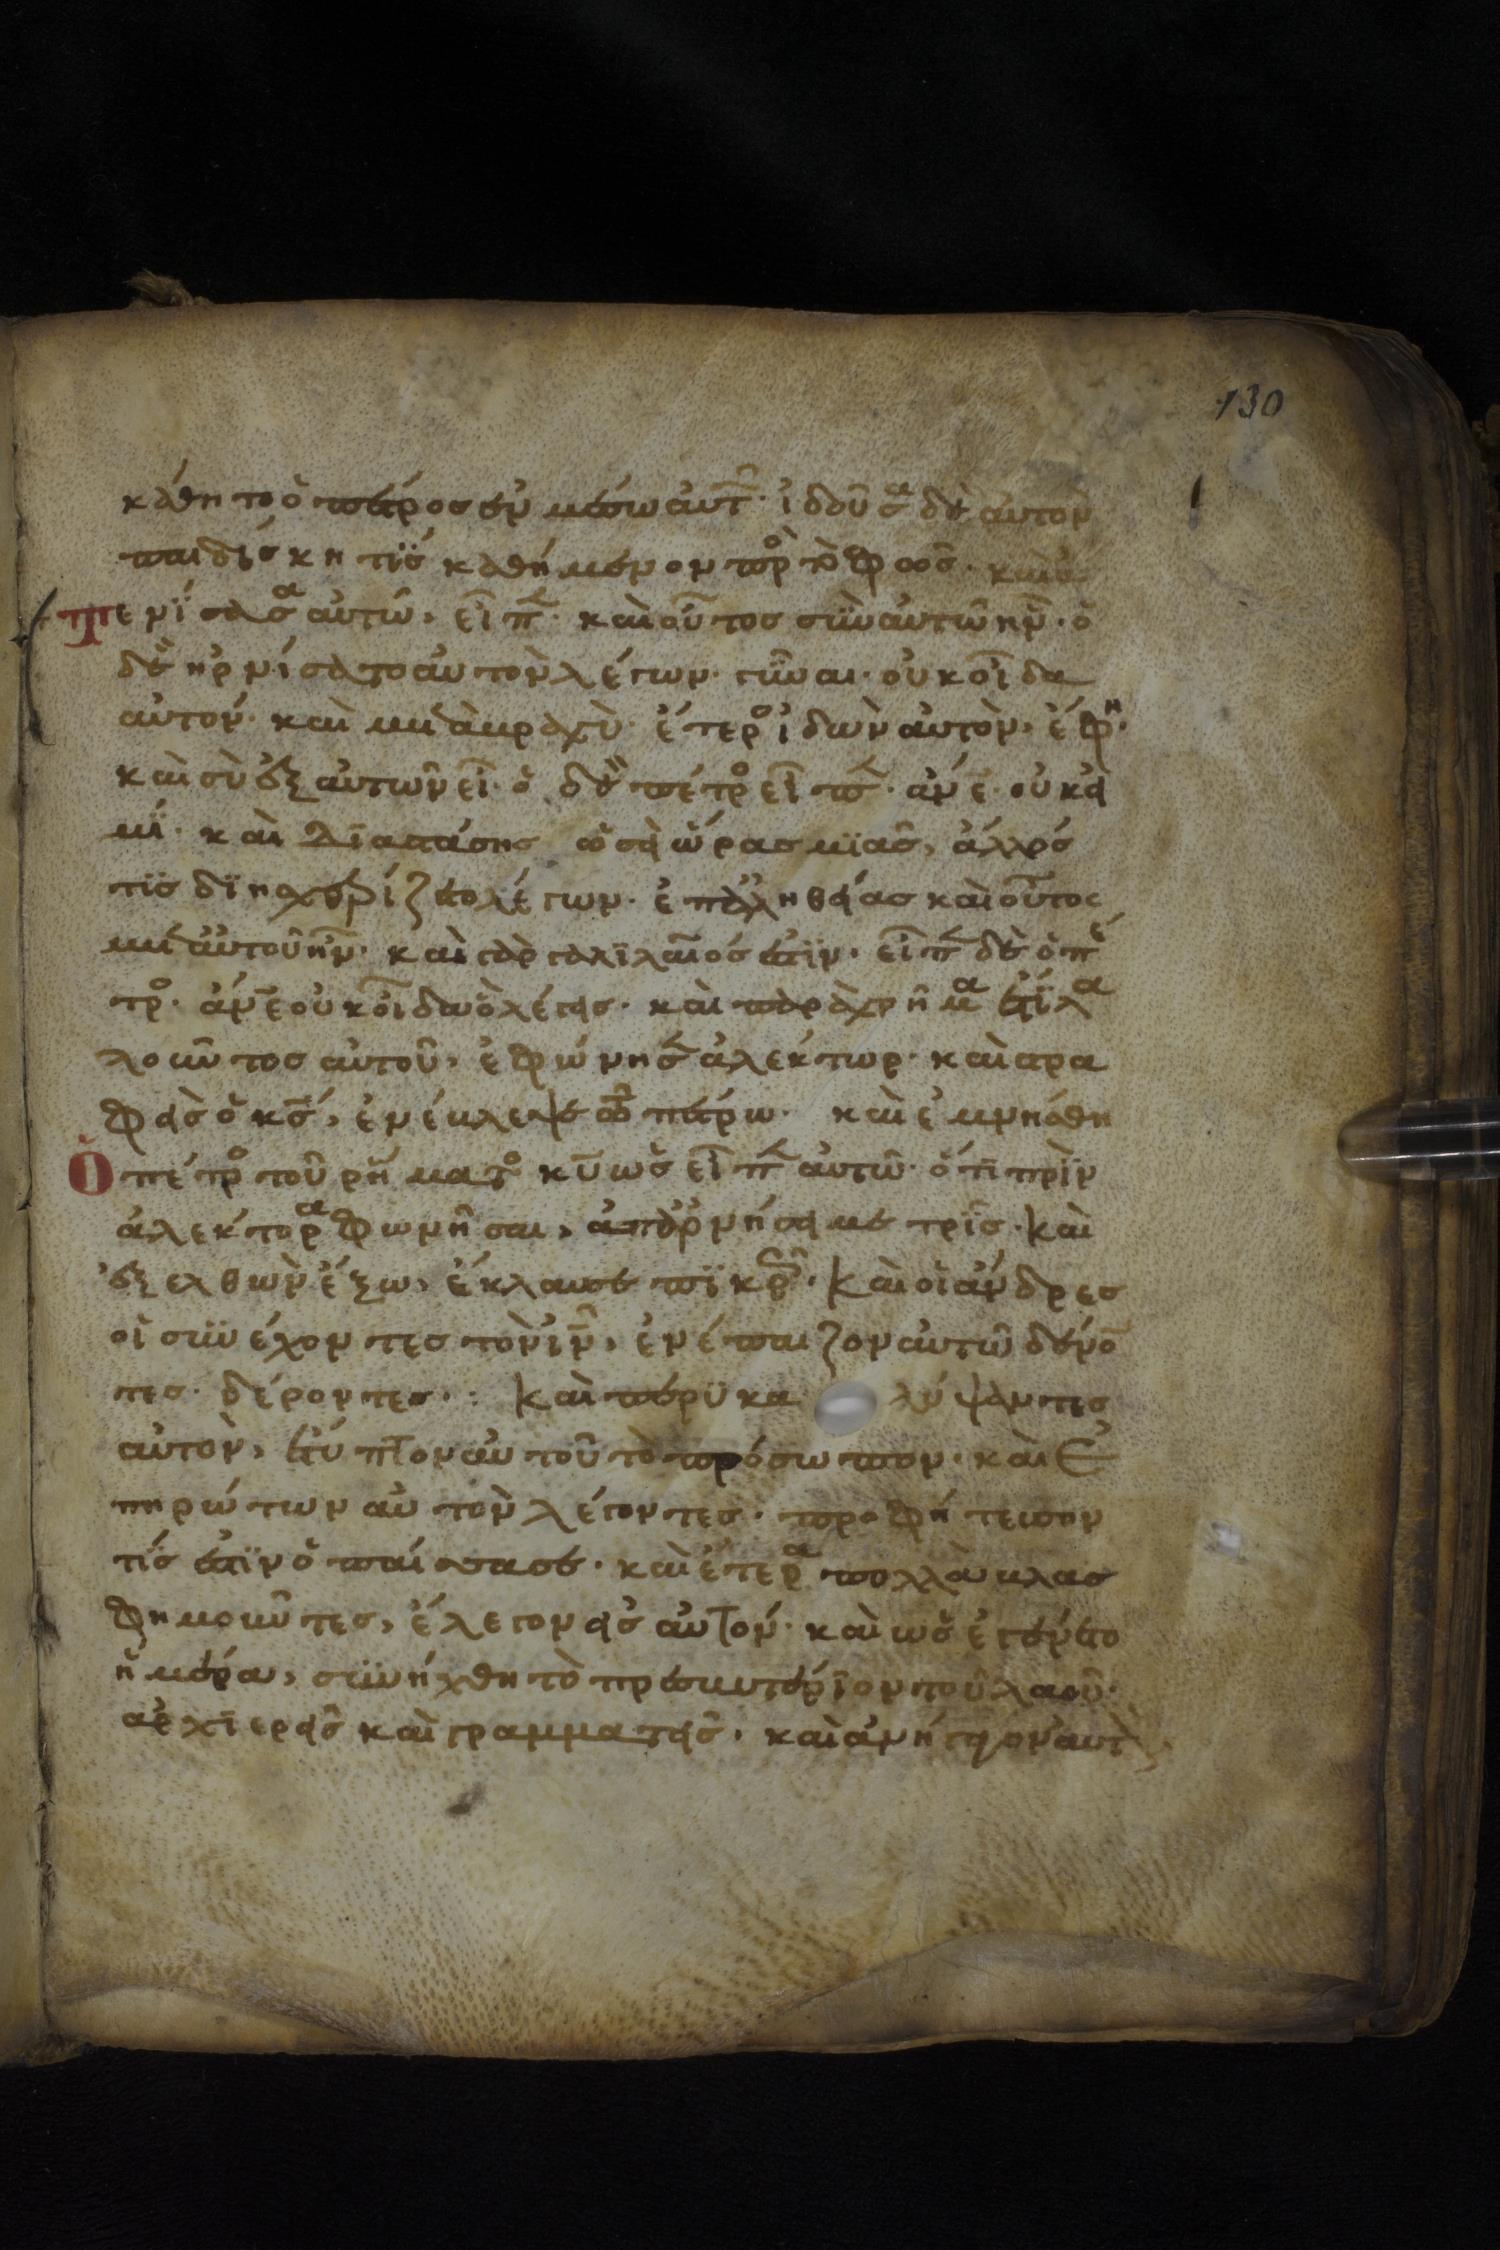 130
κάθητο ὁ πέτροσ ἐν μέσω αὐτ̑. ἰδοῦσ̄α δὲ αὐτὸν
παιδίσκη τῒσ καθήμενον πρὸ τὸ φῶσ. καὶ ἀ
τενίσασα αὐτῶ, εἶπ̄. καὶ οὗτοσ σὺν αὐτῶ ην̄̃. ὁ
δὲ ηρνίσατο αὐτὸν λέγων. γύναι. οὐκ οἶδα
αὐτόν. καὶ μετὰ μραχὺ. ἕτερο ἰδὼν αὐτὸν, ἔφη.
καὶ σὺ ἐξ αὐτῶν εἶ. ὁ δὲ πέτρο εἶπ̄. ἄν̄ε. οὐκ εἰ
μῒ. καὶ διαστάσησ ὡσεὶ ὥρασ μϊᾶσ, ἄλλοσ
τϊσ διησχυρίζετο λέγων. ἐπ ἀληθείασ καὶ οὗτοσ
μετ αὐτοῦ ην̄̃. καὶ γὰρ γαλϊλαῖόσ ἐστϊν. εἶπ̄ δὲ ὁ πέ
τρο. ἄν̄ε οὐκ οἶδα ὃ λέγεισ. καὶ παραχρῆμα ἔτϊ λα
λοῦντοσ αὐτοῦ, ἐφώνησ̄ ἀλέκτωρ. καὶ στρα
φεὶσ ὁ κ̄σ, ἐνέμλεψε τῶ πέτρω. καὶ ἐμνήσθη
ὁ πέτρο τοῦ ρήματο κ̄υ ὡσ εἶπ̄ αὐτῶ. ὅτϊ πρὶν
ἀλέκτορα φωνῆσαι, ἀπαρνήσει με τρῒσ. καὶ
ἐξελθὼν ἔξω, ἔκλαυσε πϊκρῶ. καὶ οἱ ἄνδρεσ
οἱ συνέχοντεσ τὸν ἰ̄ν, ἐνέπαιζον αὐτῶ δέρο
τεσ. δέροντεσ.: καὶ περϋκα λύψαντεσ
αὐτὸν, ἔτυπτον αὐτοῦ τὸ πρόσωπον. καὶ ἐ
πηρώτων αὐτὸν λέγοντεσ. προφήτευσον
τίσ ἐστϊν ὁ παίσασ σε. καὶ ἕτερα πολλὰ μλασ
φημοῦντεσ, ἔλεγον εἰσ αὐτόν. καὶ ὡσ ἐγένετο
ἡμέρα, συνήχθη τὸ πρεσμυτέρϊον τοῦ λαοῦ.
ἀρχϊερεῖσ καὶ γραμματεῖσ. καὶ ἀνήγαγον αὐτὸ